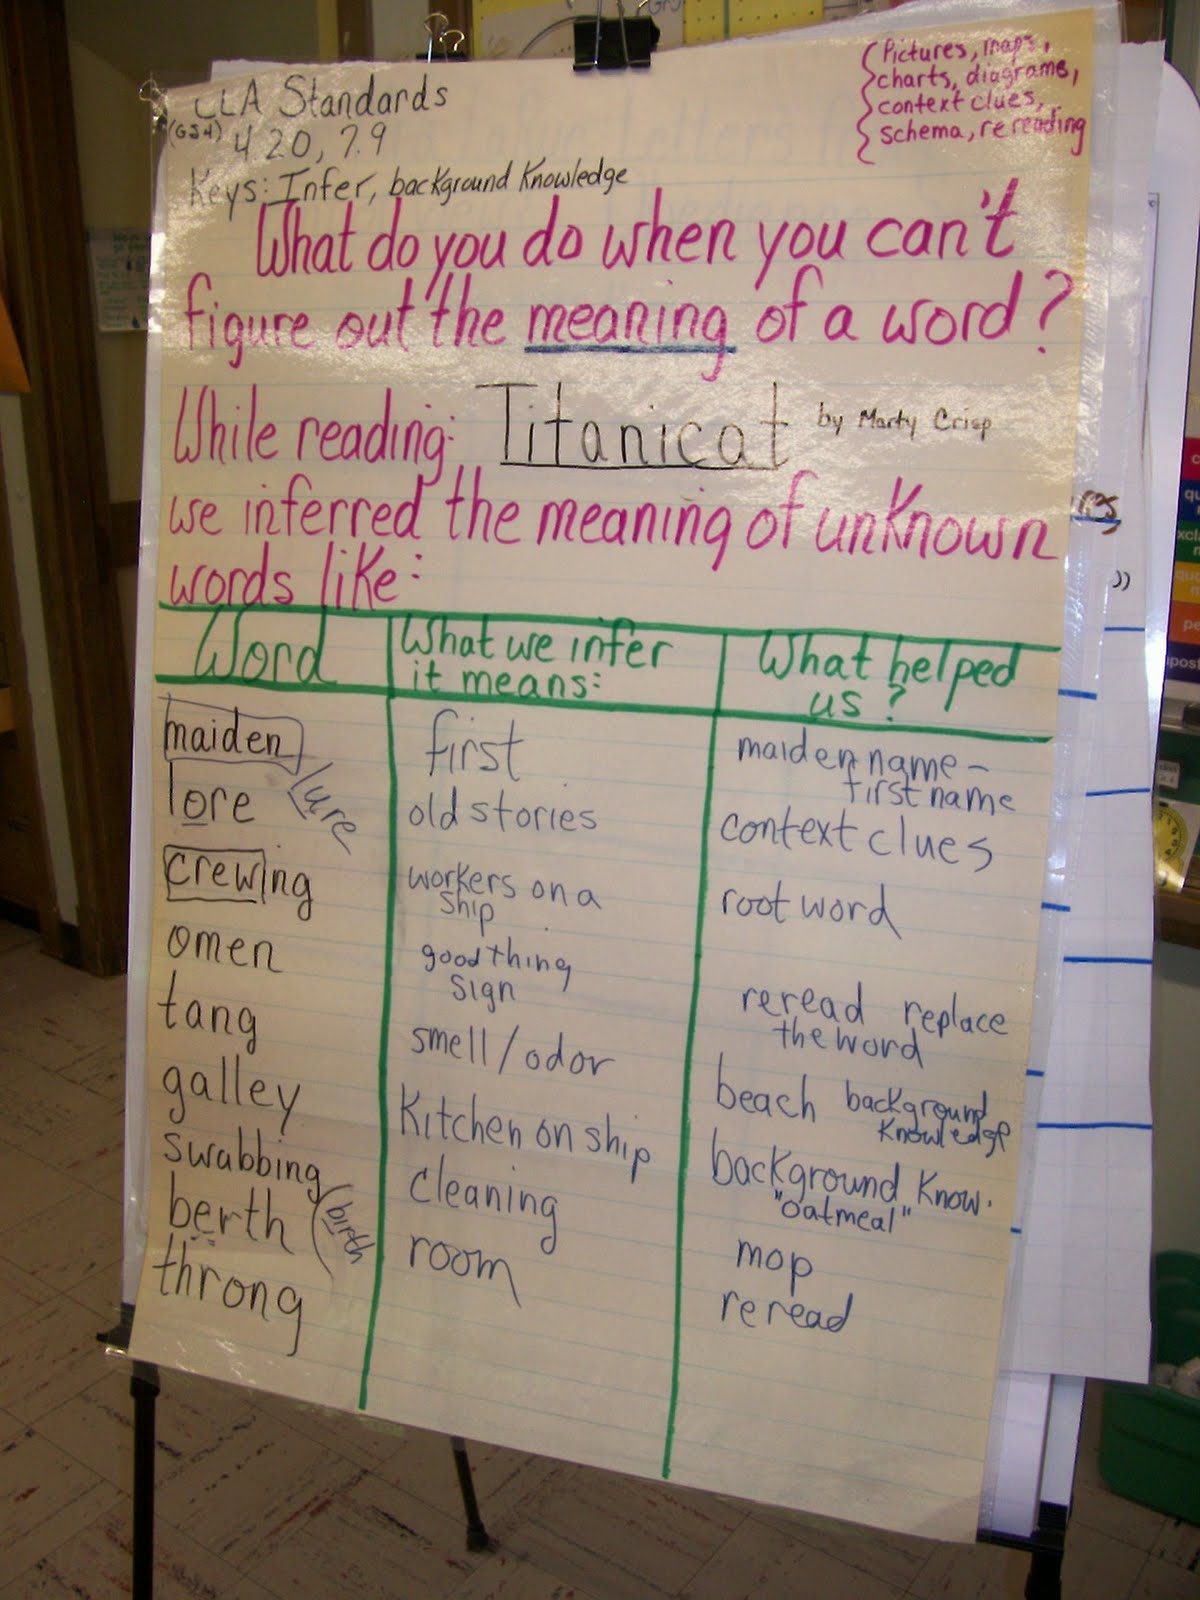 CLA Standards
(GS4) 4 20, 7.9
Keys: Infer, background Knowledge
{Pictures, maps,
charts, diagrams,
context clues,
schema, rereading
What do you do when you can't
figure out the meaning of a word?
While reading: Titanicat by Marty Crisp
we inferred the meaning of unknown
words like:
Word
What we infer
it means:
What helped
us?
maiden
first
maiden name -
first name
lore
lure
old stories
context clues
crewing
workers on a
ship
root word
omen
good thing
sign
reread replace
the word
tang
smell/odor
beach background
Knowledge
galley
Kitchen on ship
background Know.
"oatmeal"
swabbing
cleaning
mop
berth
birth
room
reread
throng